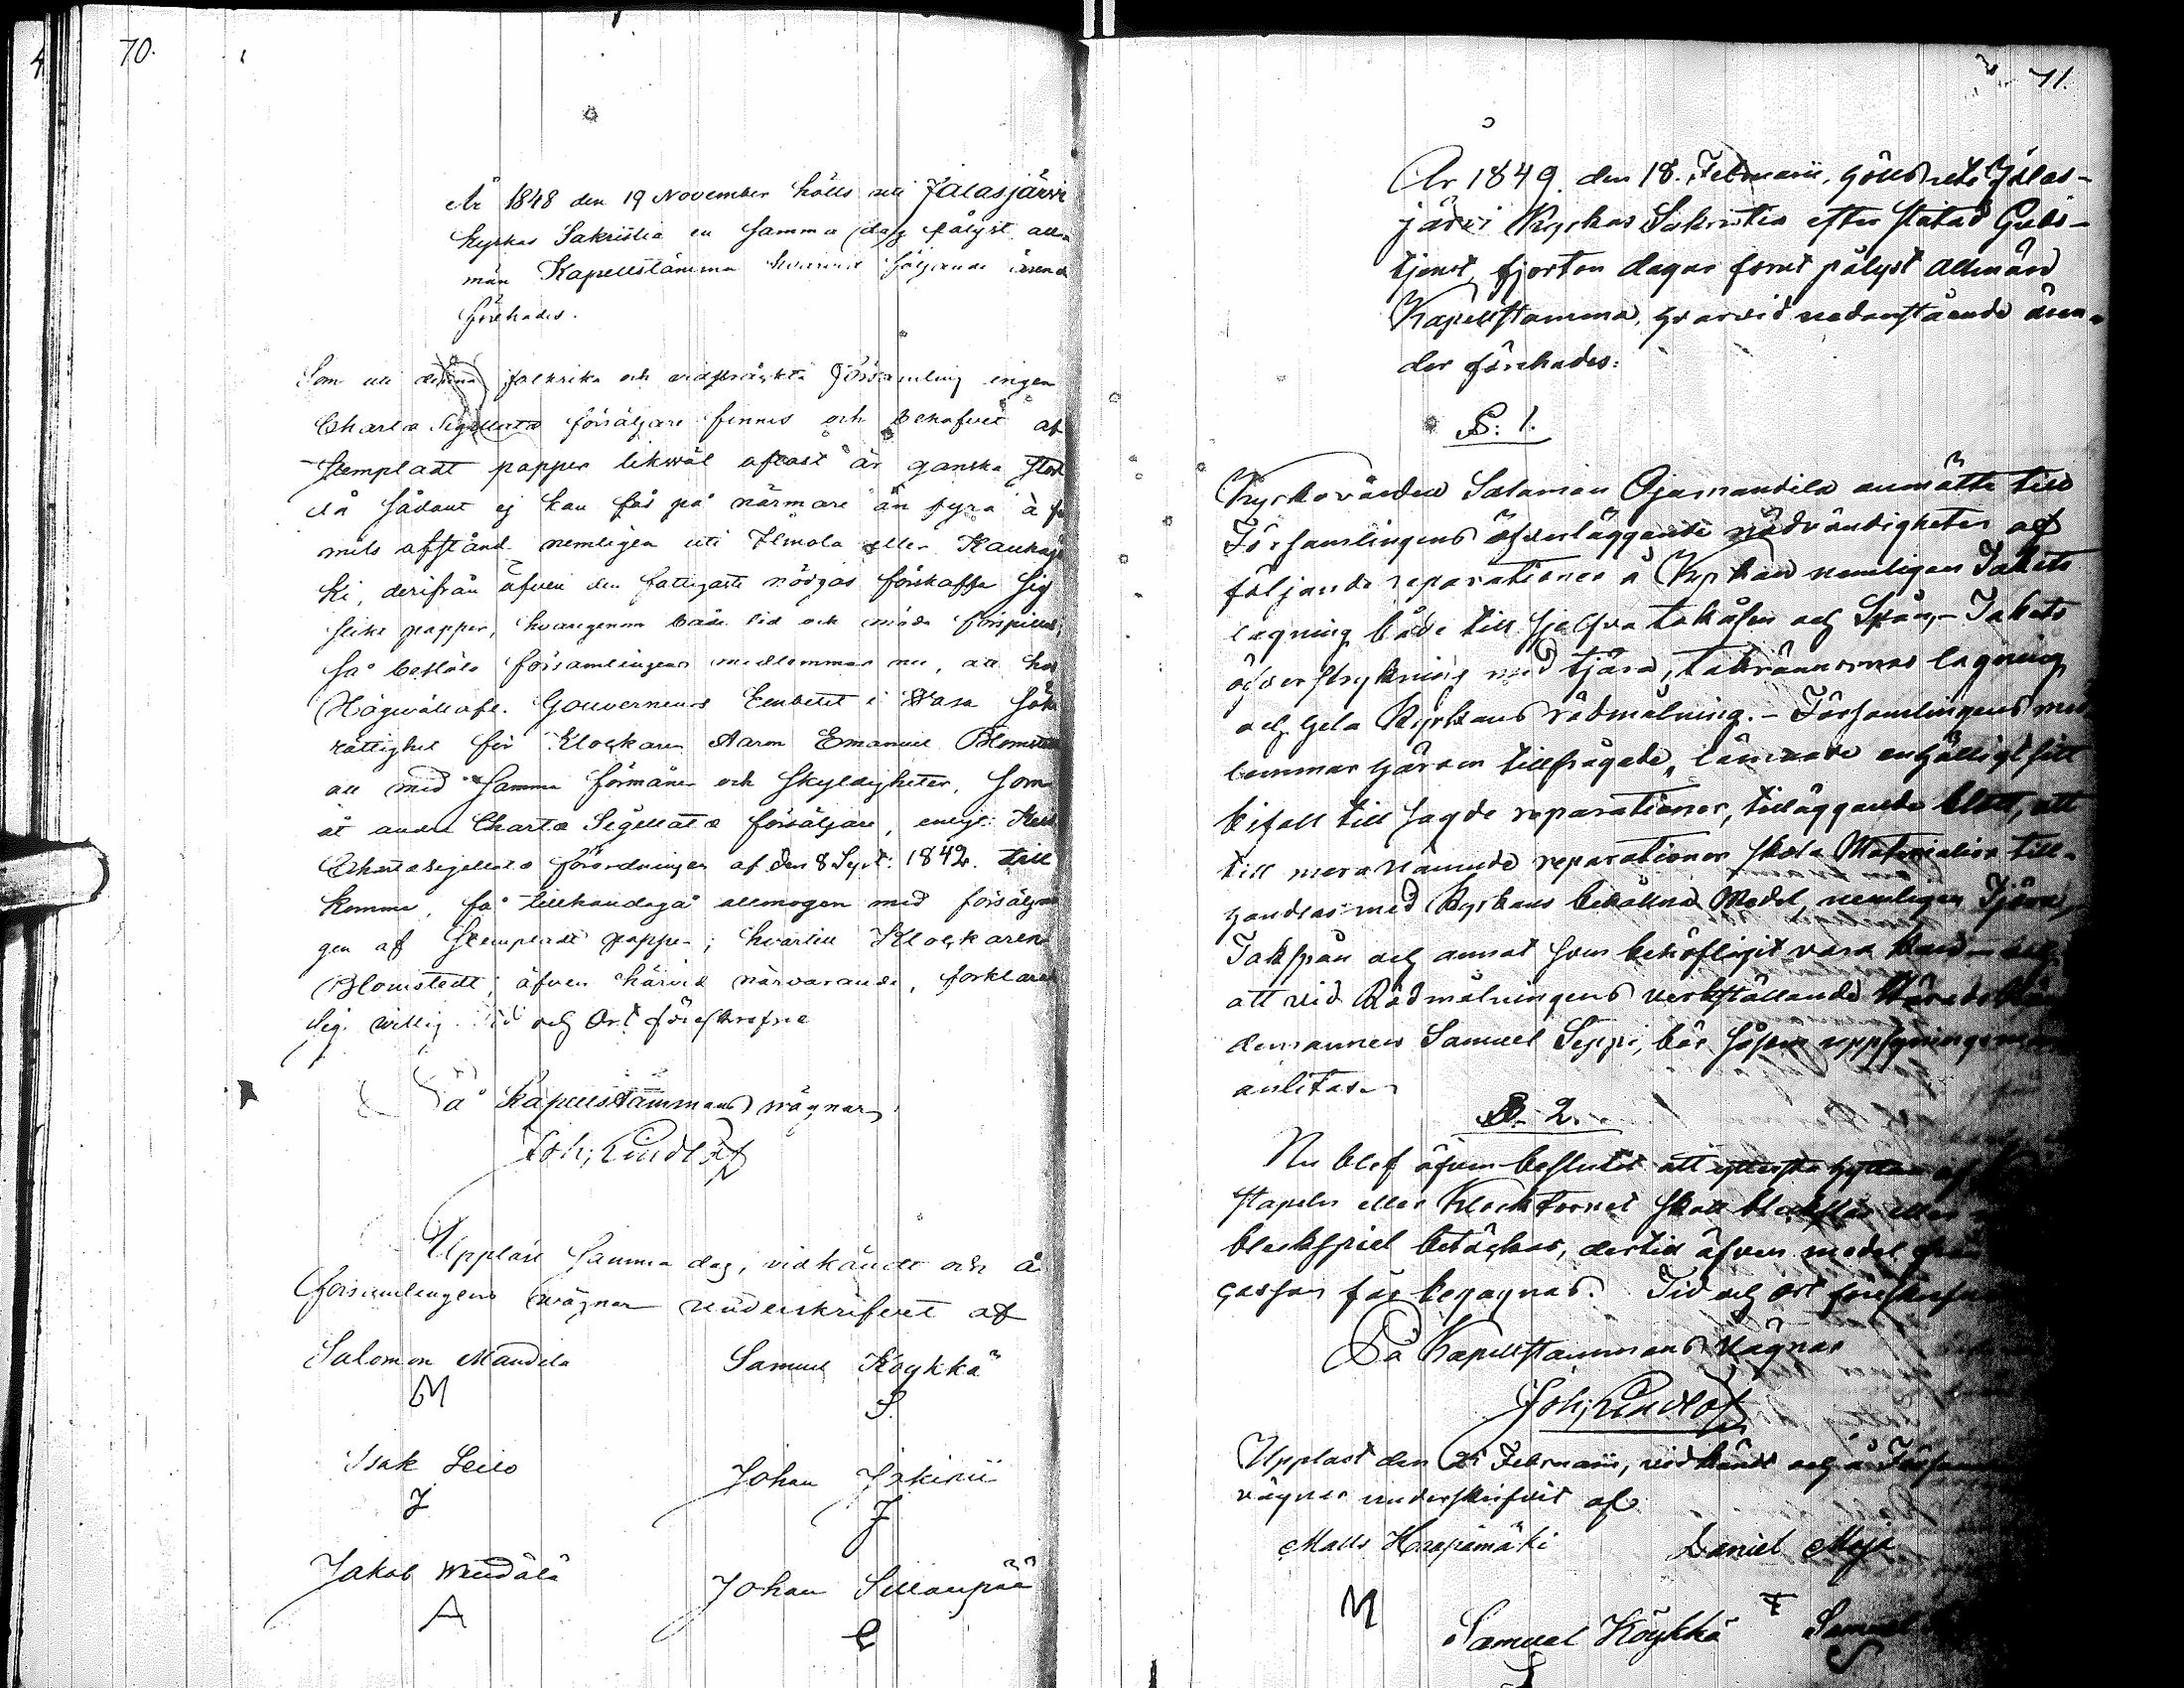 70.
År 1848 den 19 November hölls uti Jalasjärvi
kyrkas Sakristia en samma dag pålyst all
män Kapellstämma hvarvid följande ärend
förehades.
Som uti denna folkrika och vidsträckta församling ingen
Charta Sigillata försäljare finnes och behofvet af
stempladt papper likväl oftast är ganska stort
då sådant ej kan fås på närmare än fyra à
mils afstånd nemligen uti Ilmola eller Kauhajo
ki, derifrån äfven den fattigaste nödgas förskaffa sig
slikt papper, hvarigenom både tid och möda förspilles;
så beslöto församlingens medlemmar nu, att hos
Högvällofl. Gouverneurs Embetet i Wasa söka
rättighet för Klockaren Aaron Emanuel Blomstedt
att med samma förmåner och skyldigheter, som
åt andra Charta Sigillata försäljare, enligt
Chartæsigillatæ förordningen af den 8 Sept: 1842. till
komma, få tillhandagå allmogen med försäljnin
gen af stempladt papper; hvartill Klockaren
Blomstedt, äfven härvid närvarande, förklarade
sig willig. Tid och Ort föreskrefne
På Kapellstämmans wägnar
Joh; Lindlöf
Uppläst samma dag, vidkändt och å
församlingens wägnar underskrifvet af
Salomon Mandila Samuel Köykkä
M S.
Isak Leilo Johan Jokinii
J J
Jakob Johan Sillanpää
A
71.
År 1849. den 18. Februarii, hölls uti Jalas-
järvi Kyrkas Sakristia efter slutad Guds-
tjenst, fjorton dagar förut pålyst allmän
Kapellstämma, hvarvid nedanstående ären-
der förehades:
§: 1.
Kyrkovärden Salomon Ojamandila anmälte till
Församlingens öfverläggande nödvändigheten af
följande reparationer å Kyrkan nemligen Takets
lagning både till sjelfva takåsen och Spån,- Takets
öfverstrykning med tjära, takrännornas lagning
och hela Kyrkans rödmålning. - Församlingens med
lemmar härom tillfrågade, lämnade enhälligt sitt
bifall till sagde reparationer, tilläggande blott, att
till mera nämnde reparationer skola Materialier till-
handlas med Kyrkans behållna Medel, nemligen Tjära,
Takspån och annat som behöfligit vara kan - och
att vid Rödmålningens verkställande Härads
demannen Samuel Seppi, bör såsom upplysningsman
anlitas.
§. 2.
Nu blef äfven beslutit att yttersta hyttan af
stapeln eller Klocktornet skall bleckslås eller
bleckspiel betäckas, dertill äfven medel från
cassan får begagnas. Tid och ort föreskrefne
På Kapellstammans Vägnar
Joh; Lindlöf
Upplast den 25 Februarii, vidkändt och å Församl
vägnar underskrifvit af
Matts Haapamäki Daniel Moja
M
Samuel Köykkä Samuel
S S